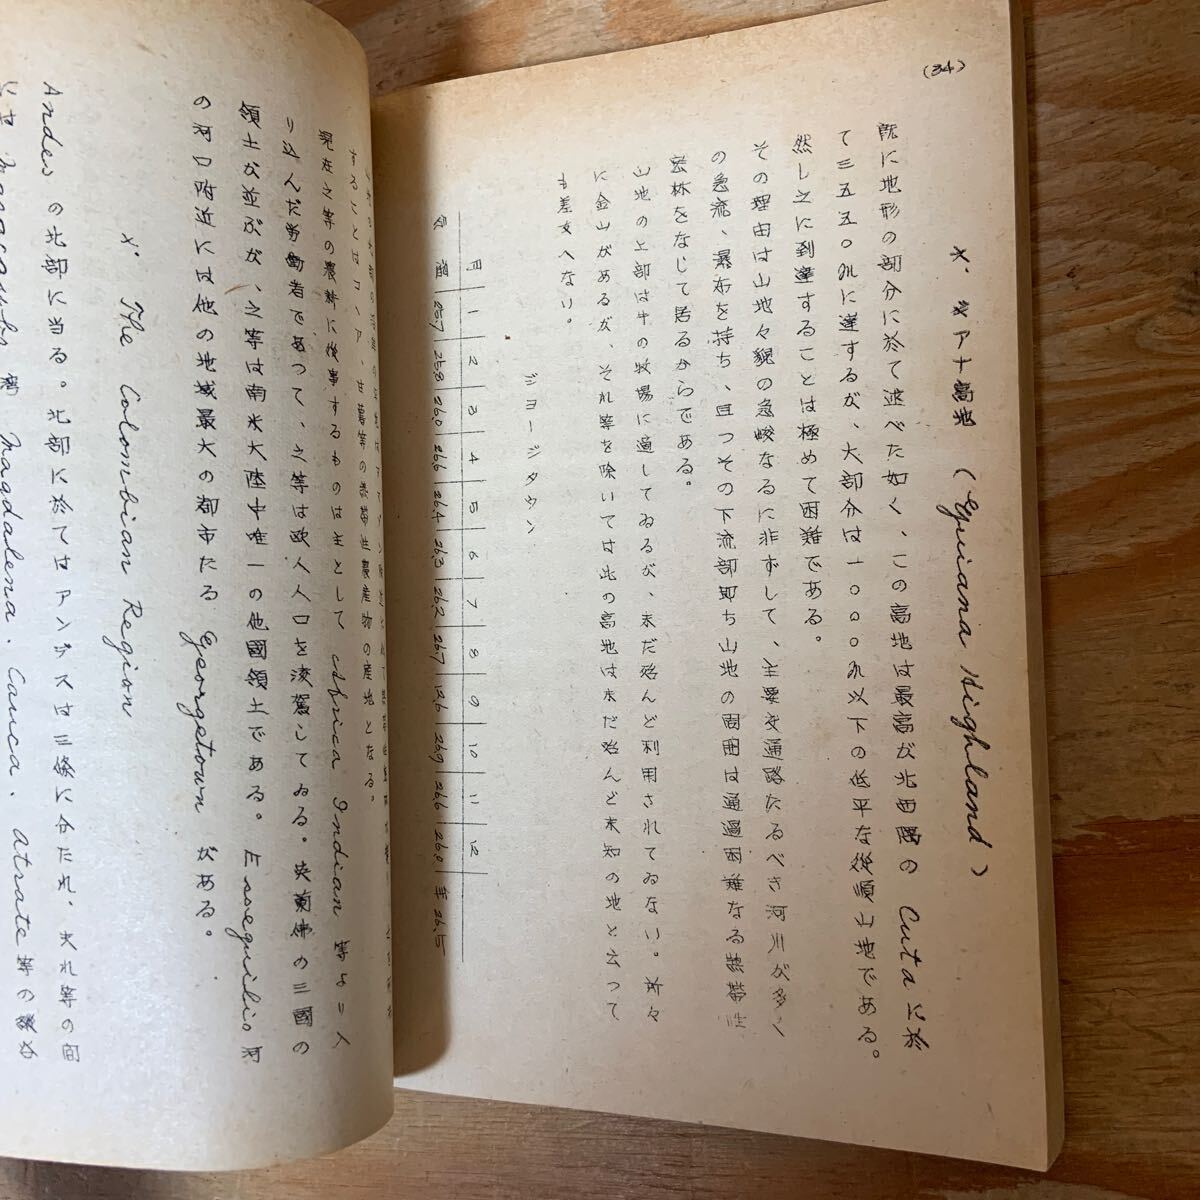 (34)
×. ギアナ高地 (Guiana Highland)
既に地形の部分に於て述べた如く、この高地は最高が北西隅の Cuta に於
て三五五〇mに達するが、大部分は一〇〇〇m以下の低平な後順山地である。
然し之に到達することは極めて困難である。
その理由は山地々貌の急峻なるに非ずして、主要交通路たるべき河川が多く
の急流、瀑布を持ち、且つその下流部即ち山地の周囲は通過困難なる熱帯性
密林をなして居るからである。
山地の上部は牛の牧場に適してゐるが、未だ殆んど利用されてゐない。所々
に金山があるが、それ等を除いては此の高地は未だ殆んど未知の地と云つて
も差支へない。
ジヨージタウン
月 1 2 3 4 5 6 7 8 9 10 11 12
気温 25.7 25.8 26.0 26.6 26.4 26.3 26.2 26.7 26.9 26.6 26.0 年 26.5
することはコーヒア、甘蔗等の熱帯性農産物の産地となる。
現在之等の農耕に従事するものは主として Africa Indian 等より入
り込んだ労働者であつて、之等は欧人人口を凌駕してゐる。英蘭佛の三國の
領土が並ぶが、之等は南米大陸中唯一の他國領土である。Essequibo 河
の河口附近には他の地域最大の都市たる Georgetown がある。
×. The Colombian Region
Andes の北部に当る。北部に於てはアンデスは三條に分たれ、夫れ等の間
Magdalena. Cauca. Atrate 等の